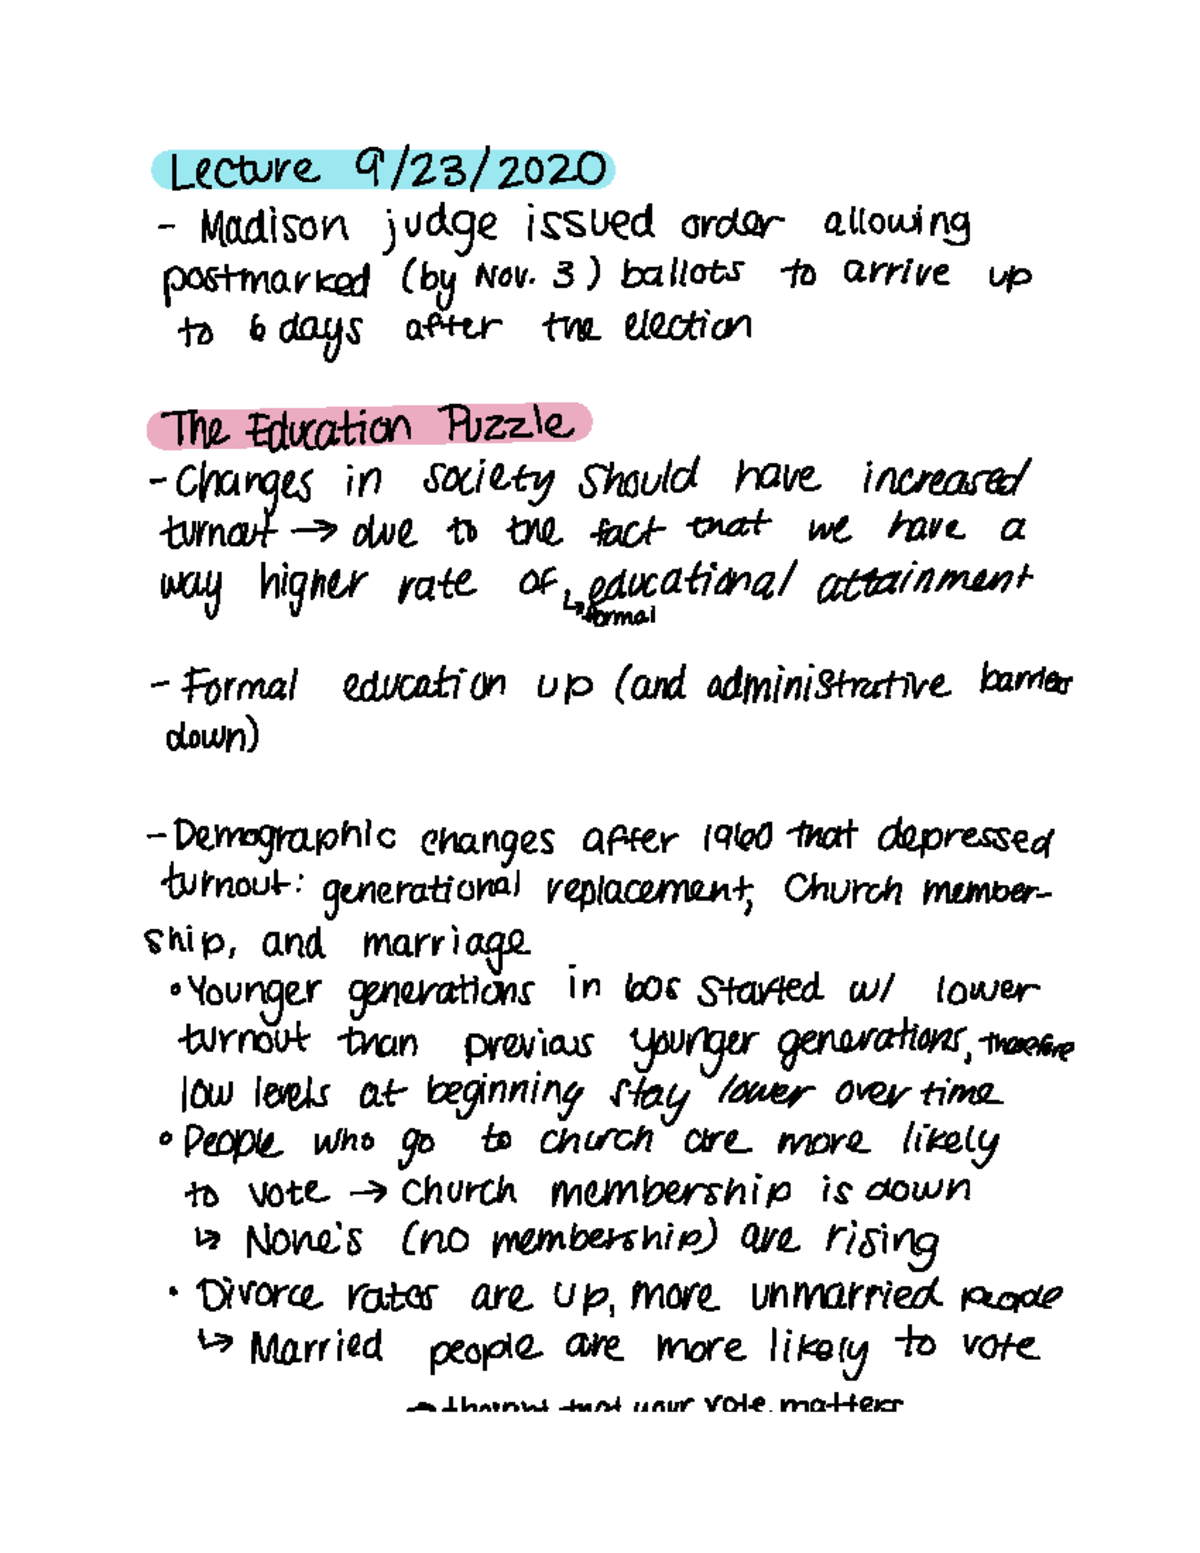 Lecture 9/23/2020
- Madison judge issued order allowing
postmarked (by Nov. 3) ballots to arrive up
to 6 days after the election
The Education Puzzle
- Changes in society should have increased
turnout → due to the fact that we have a
way higher rate of educational attainment
↳ formal
- Formal education up (and administrative barriers
down)
- Demographic changes after 1960 that depressed
turnout: generational replacement, Church member-
ship, and marriage
• Younger generations in 60s started w/ lower
turnout than previous younger generations, therefore
low levels at beginning stay lower over time
• People who go to church are more likely
to vote → Church membership is down
↳ None's (no membership) are rising
• Divorce rates are up, more unmarried people
↳ Married people are more likely to vote
that your vote matters